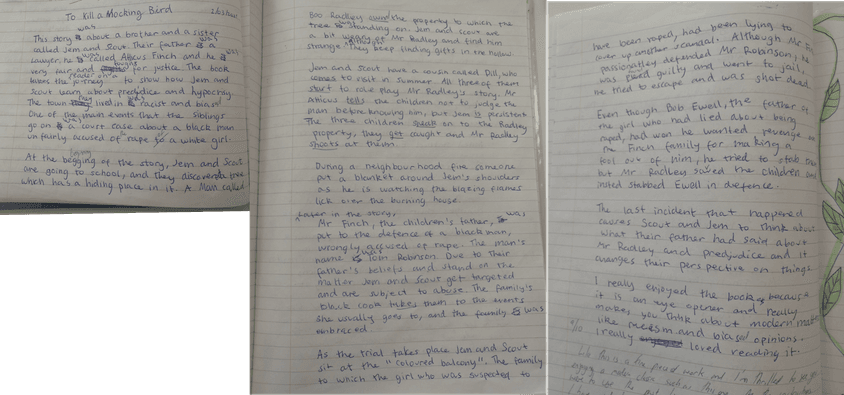 To Kill a Mocking Bird
was
This story is about a brother and a sister
called Jem and Scout. Their father is a
was
lawyer, he is called Atticus Finch and he
very fair and fought for justice. The book
takes the reader on a journey to show how Jem and
Scout learn about predyudice and hypocrisy.
The town they lived in is racist and biased
One of the main events that the siblings
go on is a court case about a black man
un fairly accused of rape to a white girl.
At the begging of the story, Jem and Scout
are going to school, and they discover a tree
which has a hiding place in it. A Man called
Boo Radley owns the property to which the
tree is standing on. Jem and scout are
a bit weary of Mr Radley and find him
strange. They keep finding gifts in the hollow.
Jem and Scout have a cousin called Dill, who
comes to visit in summer. All three of them
start to role play Mr Radley's story. Mr
Atticus tells the children not to judge the
man before knowing him, but Jem is persistent
The three children sneak on to the Radley
property, they get caught and Mr Radley
shoots at them.
During a neighbourhood fire someone
put a blanket around Jem's shoulders
as he is watching the blazing flames
lick over the burning house.
Later in the story,
Mr Finch, the children's father, is was
put to the defence of a black man,
wrongly accused of rape. The man's
was
name is Tom Robinson. Due to their
father's beliefs and stand on the
matter Jem and Scout get targeted
and are subject to abuse. The family's
black cook takes them to the events
she usually goes to, and the family is was
embraced.
As the trial takes place Jem and Scout
sit at the "coloured balcony". The family
to which the girl who was suspected to
have been raped, had been lying to
cover up another scandal. Although Mr
passionatley defended Mr Robinson, he
was guilty and went to jail,
he tried to escape and was shot dead.
Even though Bob Ewell, the father of
the girl who had lied about being
raped, had won he wanted revenge on
the Finch family for making a
fool out of him, he tried to stab
but Mr Radley saved the children and
insted stabbed Ewell in defence.
The last incident that happened
causes Scout and Jem to think about
what their father had said about
Mr Radley and predyudice and it
changes their perspective on things
I really enjoyed the book because
it is an eye opener and really
makes you think about modern
like racism and biased opinions.
I really loved reading it.